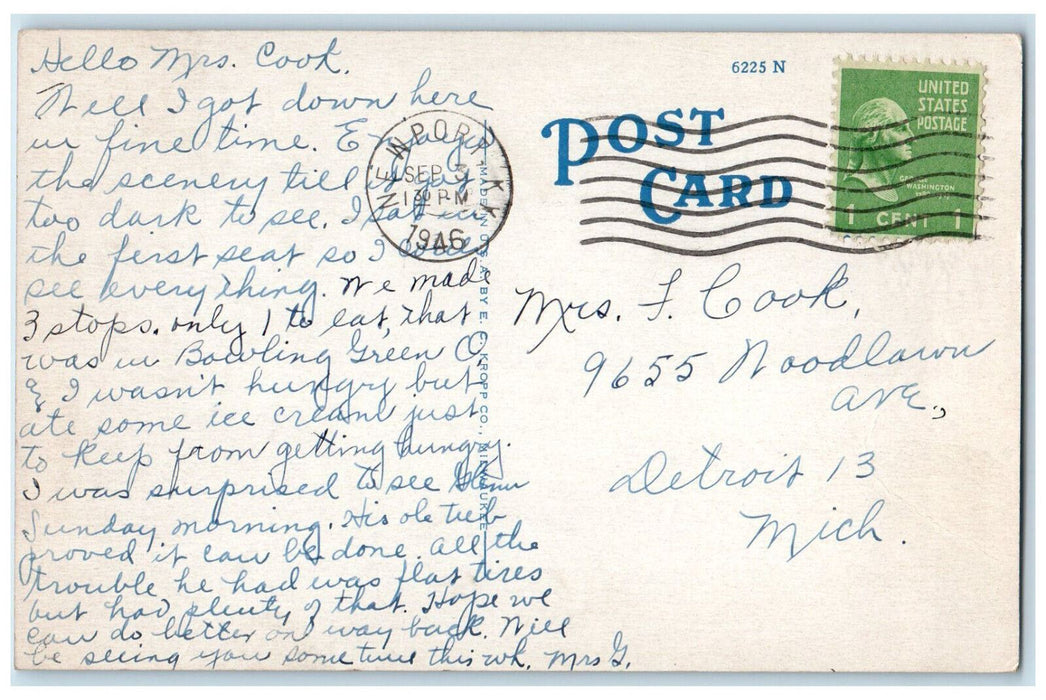 Hello Mrs. Cook.
Well I got down here
in fine time. Enjoyed
the scenery till it got
too dark to see. I sat in
the first seat so I could
see everything. We made
3 stops. only 1 to eat, that
was in Bowling Green O.
& I wasn't hungry but
ate some ice cream just
to keep from getting hungry.
I was surprised to see Glenn
Sunday morning. His ole tub
proved it can be done. All the
trouble he had was flat tires
but had plenty of that. Hope we
can do better on way back. Will
be seeing you some time this wk. Mrs G.
MADE IN U.S.A. BY E. C. KROPP CO., MILWAUKEE
6225 N
POST
CARD
NEWPORT KY
SEP 3
1 30 PM
1946
UNITED
STATES
POSTAGE
GEORGE
WASHINGTON
1 CENT 1
Mrs. F. Cook,
9655 Woodlawn
Ave.,
Detroit 13
Mich.